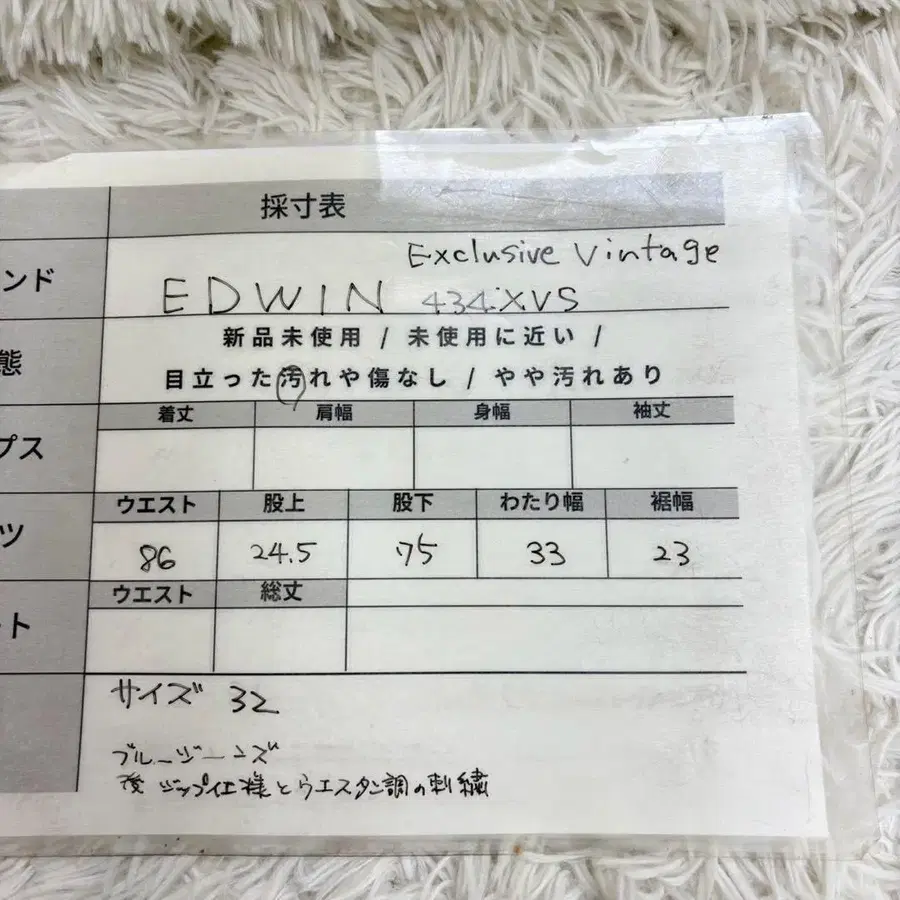 採寸表
ンド
Exclusive Vintage
EDWIN 434XVS
態
新品未使用 / 未使用に近い /
目立った汚れや傷なし / やや汚れあり
プス
着丈 肩幅 身幅 袖丈
ツ
ウエスト 股上 股下 わたり幅 裾幅
86 24.5 75 33 23
ート
ウエスト 総丈
サイズ 32
ブルージーンズ
後 ジップ仕様とウエスタン調の刺繍